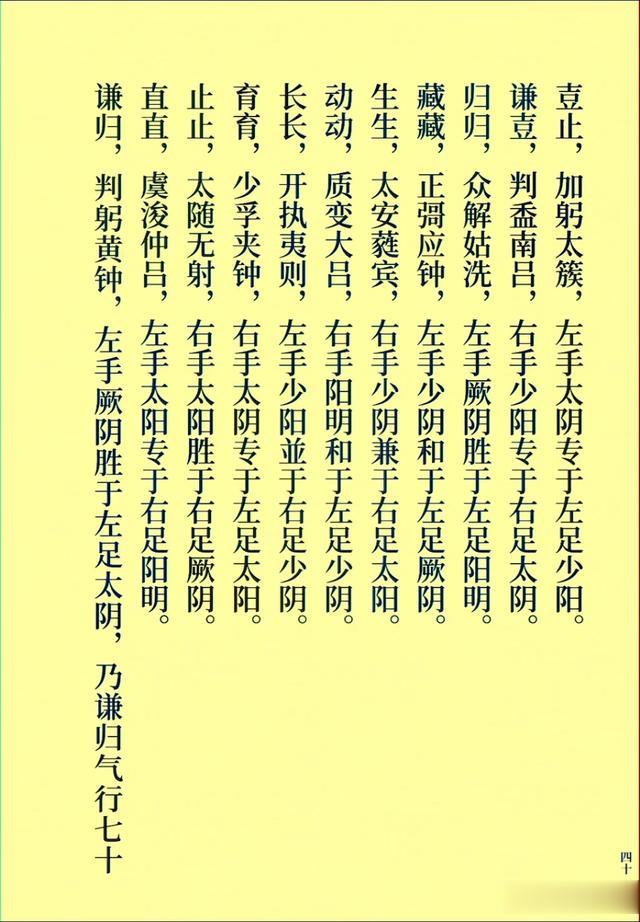 壴止，加躬太簇，左手太阴专于左足少阳。
谦壴，判盉南吕，右手少阳专于右足太阴。
归归，众解姑洗，左手厥阴胜于左足阳明。
藏藏，正彁应钟，左手少阴和于左足厥阴。
生生，太安蕤宾，右手少阴兼于右足太阳。
动动，质变大吕，右手阳明和于左足少阴。
长长，开执夷则，左手少阳並于右足少阴。
育育，少孚夹钟，右手太阴专于左足太阳。
止止，太随无射，右手太阳胜于右足厥阴。
直直，虞浚仲吕，左手太阳专于右足阳明。
谦归，判躬黄钟，左手厥阴胜于左足太阴，乃谦归气行七十
四十